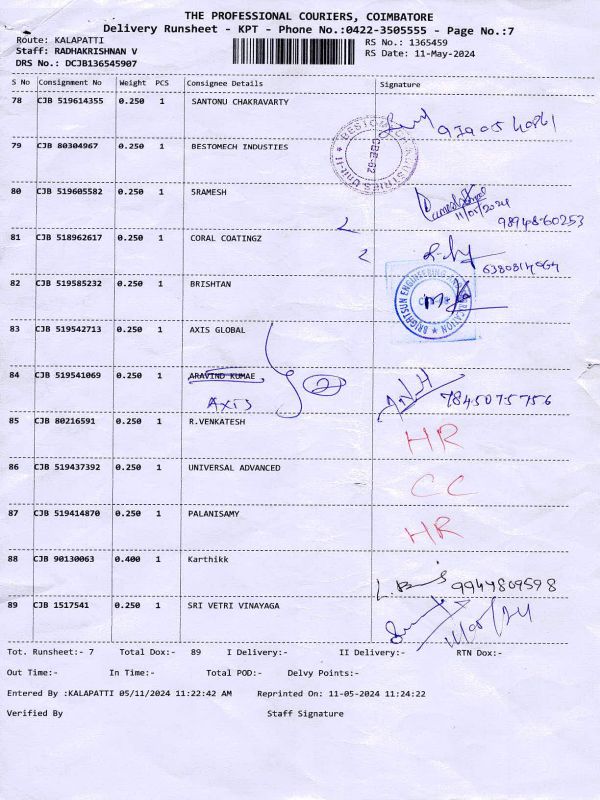 THE PROFESSIONAL COURIERS, COIMBATORE
Delivery Runsheet - KPT - Phone No.:0422-3505555 - Page No.:7
Route: KALAPATTI RS No.: 1365459
Staff: RADHAKRISHNAN V RS Date: 11-May-2024
DRS No.: DCJB136545907
S No Consignment No Weight PCS Consignee Details Signature
78 CJB 519614355 0.250 1 SANTONU CHAKRAVARTY
79 CJB 80304967 0.250 1 BESTOMECH INDUSTIES
BESTOMECH INDUSTRIES Unit-II
CBE-62
80 CJB 519605582 0.250 1 5RAMESH
11/05/2024
98948-60253
81 CJB 518962617 0.250 1 CORAL COATINGZ
82 CJB 519585232 0.250 1 BRISHTAN
83 CJB 519542713 0.250 1 AXIS GLOBAL
84 CJB 519541069 0.250 1 ARAVIND KUMAE
AXIS 2 7845075756
85 CJB 80216591 0.250 1 R.VENKATESH HR
86 CJB 519437392 0.250 1 UNIVERSAL ADVANCED CC
87 CJB 519414870 0.250 1 PALANISAMY HR
88 CJB 90130063 0.400 1 Karthikk 9944809598
89 CJB 1517541 0.250 1 SRI VETRI VINAYAGA
Tot. Runsheet:- 7 Total Dox:- 89 I Delivery:- II Delivery:- RTN Dox:-
Out Time:- In Time:- Total POD:- Delvy Points:-
Entered By :KALAPATTI 05/11/2024 11:22:42 AM Reprinted On: 11-05-2024 11:24:22
Verified By Staff Signature